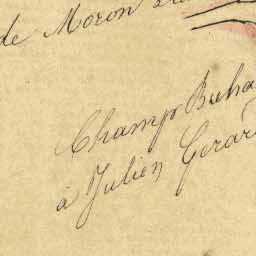 de Moron
Champ Buha
à Julien Gerar